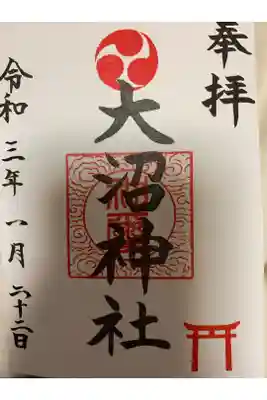 奉拝
大沼神社
令和三年八月二十二日